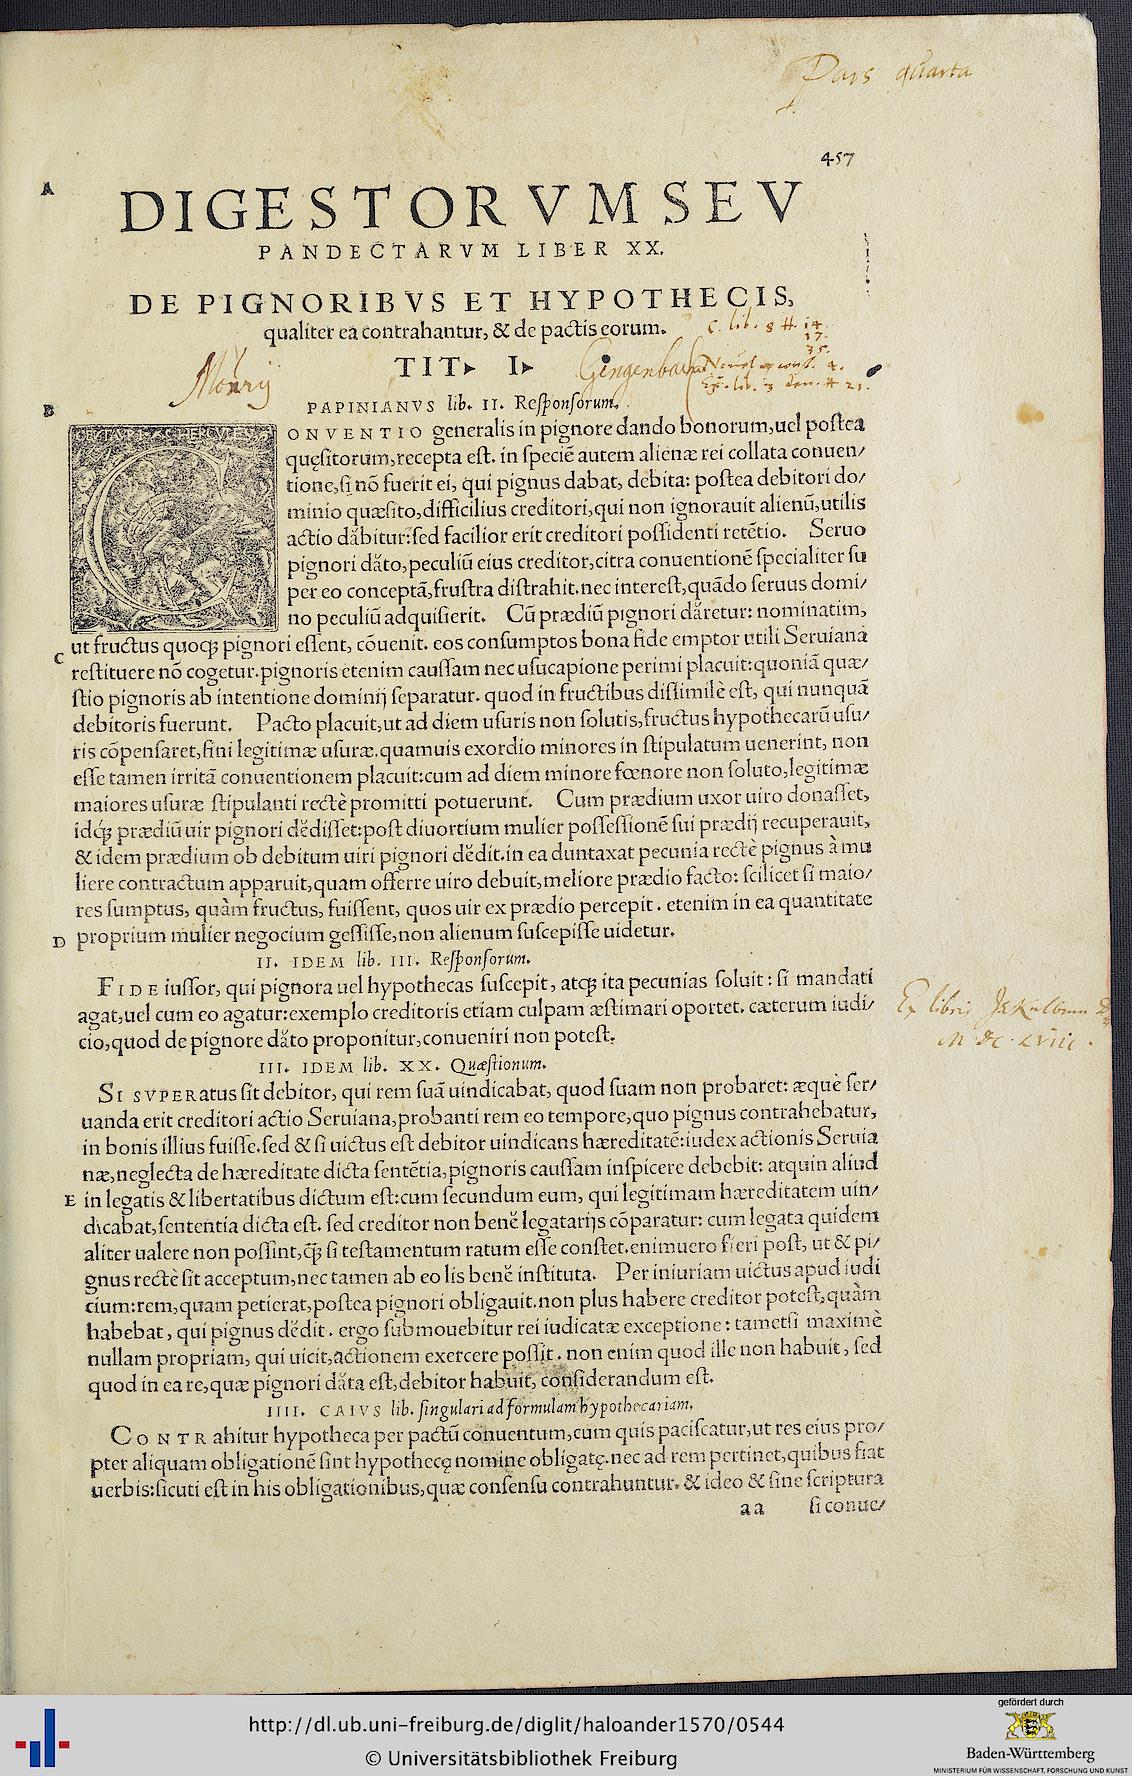 Pars quarta
457
A
DIGESTORVM SEV
PANDECTARVM LIBER XX.
DE PIGNORIBVS ET HYPOTHECIS,
qualiter ea contrahantur, & de pactis eorum.
C. lib. 8 tt. 14.
17.
35.
TIT. I.
Gingenbach
PAPINIANVS lib. II. Responsorum.
B
CONVENTIO generalis in pignore dando bonorum, uel postea
quęsitorum, recepta est. in speciē autem alienæ rei collata conuen/
tione, si nō fuerit ei, qui pignus dabat, debita: postea debitori do/
minio quæsito, difficilius creditori, qui non ignorauit alienū, utilis
actio dăbitur: sed facilior erit creditori possidenti retētio. Seruo
pignori dăto, peculiū eius creditor, citra conuentionē specialiter su
per eo conceptā, frustra distrahit. nec interest, quādo seruus domi/
no peculiū adquisierit. Cū prædiū pignori dăretur: nominatim,
ut fructus quoqꝫ pignori essent, cōuenit. eos consumptos bona fide emptor utili Seruiana
C
restituere nō cogetur. pignoris etenim caussam nec usucapione perimi placuit: quoniā quæ/
stio pignoris ab intentione dominij separatur. quod in fructibus dissimilè est, qui nunquā
debitoris fuerunt. Pacto placuit, ut ad diem usuris non solutis, fructus hypothecarū usu/
ris cōpensaret, fini legitimæ usuræ. quamuis exordio minores in stipulatum uenerint, non
esse tamen irritā conuentionem placuit: cum ad diem minore fœnore non soluto, legitimæ
maiores usuræ stipulanti rectè promitti potuerunt. Cum prædium uxor uiro donasset,
idqꝫ prædiū uir pignori dĕdisset: post diuortium mulier possessionē sui prædij recuperauit,
& idem prædium ob debitum uiri pignori dĕdit. in ea duntaxat pecunia rectè pignus à mu
liere contractum apparuit, quam offerre uiro debuit, meliore prædio facto: scilicet si maio/
res sumptus, quàm fructus, fuissent, quos uir ex prædio percepit. etenim in ea quantitate
D
proprium mulier negocium gessisse, non alienum suscepisse uidetur.
II. IDEM lib. III. Responsorum.
FIDE iussor, qui pignora uel hypothecas suscepit, atqꝫ ita pecunias soluit: si mandati
agat, uel cum eo agatur: exemplo creditoris etiam culpam æstimari oportet. cæterum iudi/
cio, quod de pignore dăto proponitur, conueniri non potest.
Ex libris
M DC LVIII.
III. IDEM lib. XX. Quæstionum.
SI SVPERatus sit debitor, qui rem suā uindicabat, quod suam non probaret: æquè ser/
uanda erit creditori actio Seruiana, probanti rem eo tempore, quo pignus contrahebatur,
in bonis illius fuisse. sed & si uictus est debitor uindicans hæreditatē: iudex actionis Seruia
næ, neglecta de hæreditate dicta sentētia, pignoris caussam inspicere debebit: atquin aliud
E
in legatis & libertatibus dictum est: cum secundum eum, qui legitimam hæreditatem uin/
dicabat, sententia dicta est. sed creditor non benĕ legatarijs cōparatur: cum legata quidem
aliter ualere non possint, q̄ꝫ si testamentum ratum esse constet. enimuero fieri post, ut & pi/
gnus rectè sit acceptum, nec tamen ab eo lis benĕ instituta. Per iniuriam uictus apud iudi
cium: rem, quam petierat, postea pignori obligauit. non plus habere creditor potest, quàm
habebat, qui pignus dĕdit. ergo submouebitur rei iudicatæ exceptione: tametsi maximè
nullam propriam, qui uicit, actionem exercere possit. non enim quod ille non habuit, sed
quod in ea re, quæ pignori dăta est, debitor habuit, considerandum est.
IIII. CAIVS lib. singulari ad formulam hypothecariam.
CONTRahitur hypotheca per pactū conuentum, cum quis paciscatur, ut res eius pro/
pter aliquam obligationē sint hypothecę nomine obligatę. nec ad rem pertinet, quibus fiat
uerbis: sicuti est in his obligationibus, quæ consensu contrahuntur. & ideo & sine scriptura
aa si conue/
http://dl.ub.uni-freiburg.de/diglit/haloander1570/0544
© Universitätsbibliothek Freiburg
gefördert durch
Baden-Württemberg
MINISTERIUM FÜR WISSENSCHAFT, FORSCHUNG UND KUNST